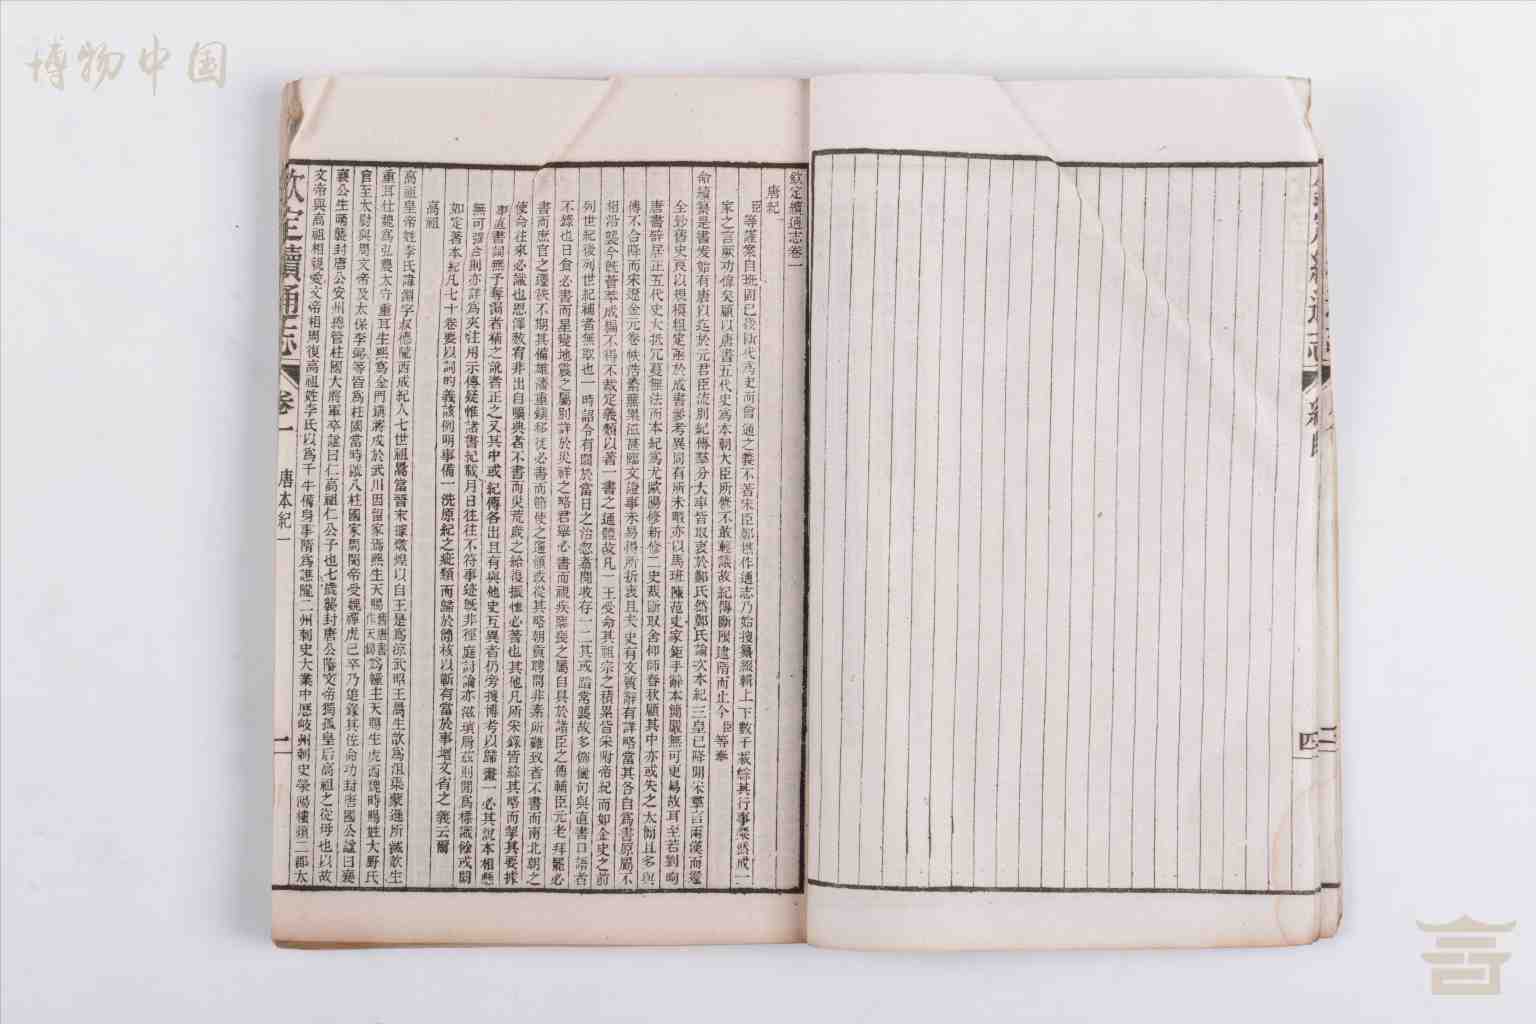 欽定續通志卷一
唐紀
臣等謹案自班固已後斷代爲史而會通之義不著宋臣鄭樵作通志乃始搜纂綴輯上下數千載綜其行事粲然成一
家之言厥功偉矣顧以唐書五代史爲本朝大臣所修不敢輕議故紀傳斷限逮隋而止今臣等奉
命續纂是書爰始有唐以迄於元君臣流別紀傳羣分大率皆取衷於鄭氏然鄭氏論次本紀三皇已降刪采羣言兩漢而還
全鈔舊史良以規模粗定亟於成書參考異同有所未暇亦以馬班陳范史家鉅手辭本簡嚴無可更易故耳至若劉昫
唐書薛居正五代史大抵冗蔓無法而本紀爲尤歐陽修新修二史裁斷取舍仰師春秋顧其中亦或失之太簡且多與
傳不合降而宋遼金元卷帙浩繁蕪累滋甚臨文證事未易得所折衷且夫史有文質辭有詳略當其各自爲書原屬不
相沿襲今旣薈萃成編不得不裁定義類以著一書之通體故凡一王受命其祖宗之積累皆采附帝紀而如金史之前
列世紀後列世紀補者無取也一時詔令有關於當日之治忽者間收存一二其或蹈常襲故多飾儷句與直書口語者
不錄也日食必書而星變地震之屬別詳於災祥之略君舉必書而視疾臨喪之屬自具於諸臣之傳輔臣元老拜罷必
書而庶官之遷秩不期其備雄藩重鎮移徙必書而節使之遙領或從其略朝貢聘問非素所難致者不書而南北朝之
使命往來必識也恩澤赦宥非出自曠典者不書而災荒歲之給復振恤必著也其他凡所采錄皆綜其略而挈其要據
事直書詞無予奪漏者補之訛者正之又其中或紀傳各出且有與他史互異者仍旁搜博考以歸畫一必其說本相懸
無可强合則亦詳爲夾注用示傳疑惟諸書記載月日往往不符事迹旣非徑庭討論亦滋瑣屑茲則間爲標識餘或闕
如定著本紀凡七十卷要以詞約義該例明事備一洗原紀之疵纇而歸於簡核以蘄有當於事增文省之義云爾
高祖
高祖皇帝姓李氏諱淵字叔德隴西成紀人七世祖暠當晉末據燉煌以自王是爲涼武昭王暠生歆爲沮渠蒙遜所滅歆生
重耳仕魏爲弘農太守重耳生熙爲金門鎮將戍於武川因留家焉熙生天賜舊唐書作天錫爲幢主天賜生虎西魏時賜姓大野氏
官至太尉與周文帝及太保李弼等皆爲柱國當時號八柱國家周閔帝受魏禪虎已卒乃追錄其佐命功封唐國公諡曰襄
襄公生昞襲封唐公安州總管柱國大將軍卒諡曰仁高祖仁公子也七歲襲封唐公隋文帝獨孤皇后高祖之從母也以故
文帝與高祖相親愛文帝相周復高祖姓李氏以爲千牛備身事隋爲譙隴二州刺史大業中歷岐州刺史滎陽樓煩二郡太
欽定續通志 卷一 唐本紀一 一
四
博物中国